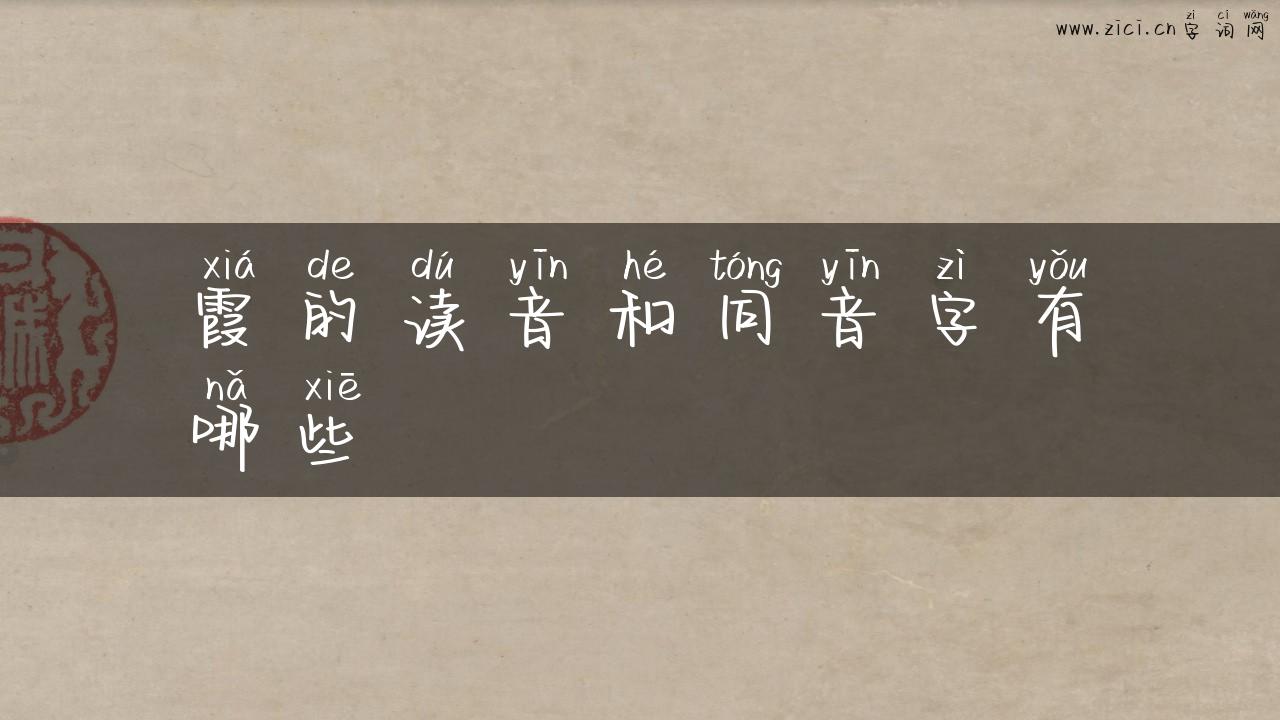 zì cí wǎng
www.zici.cn 字词网
xiá de dú yīn hé tóng yīn zì yǒu
霞的读音和同音字有
nǎ xiē
哪些